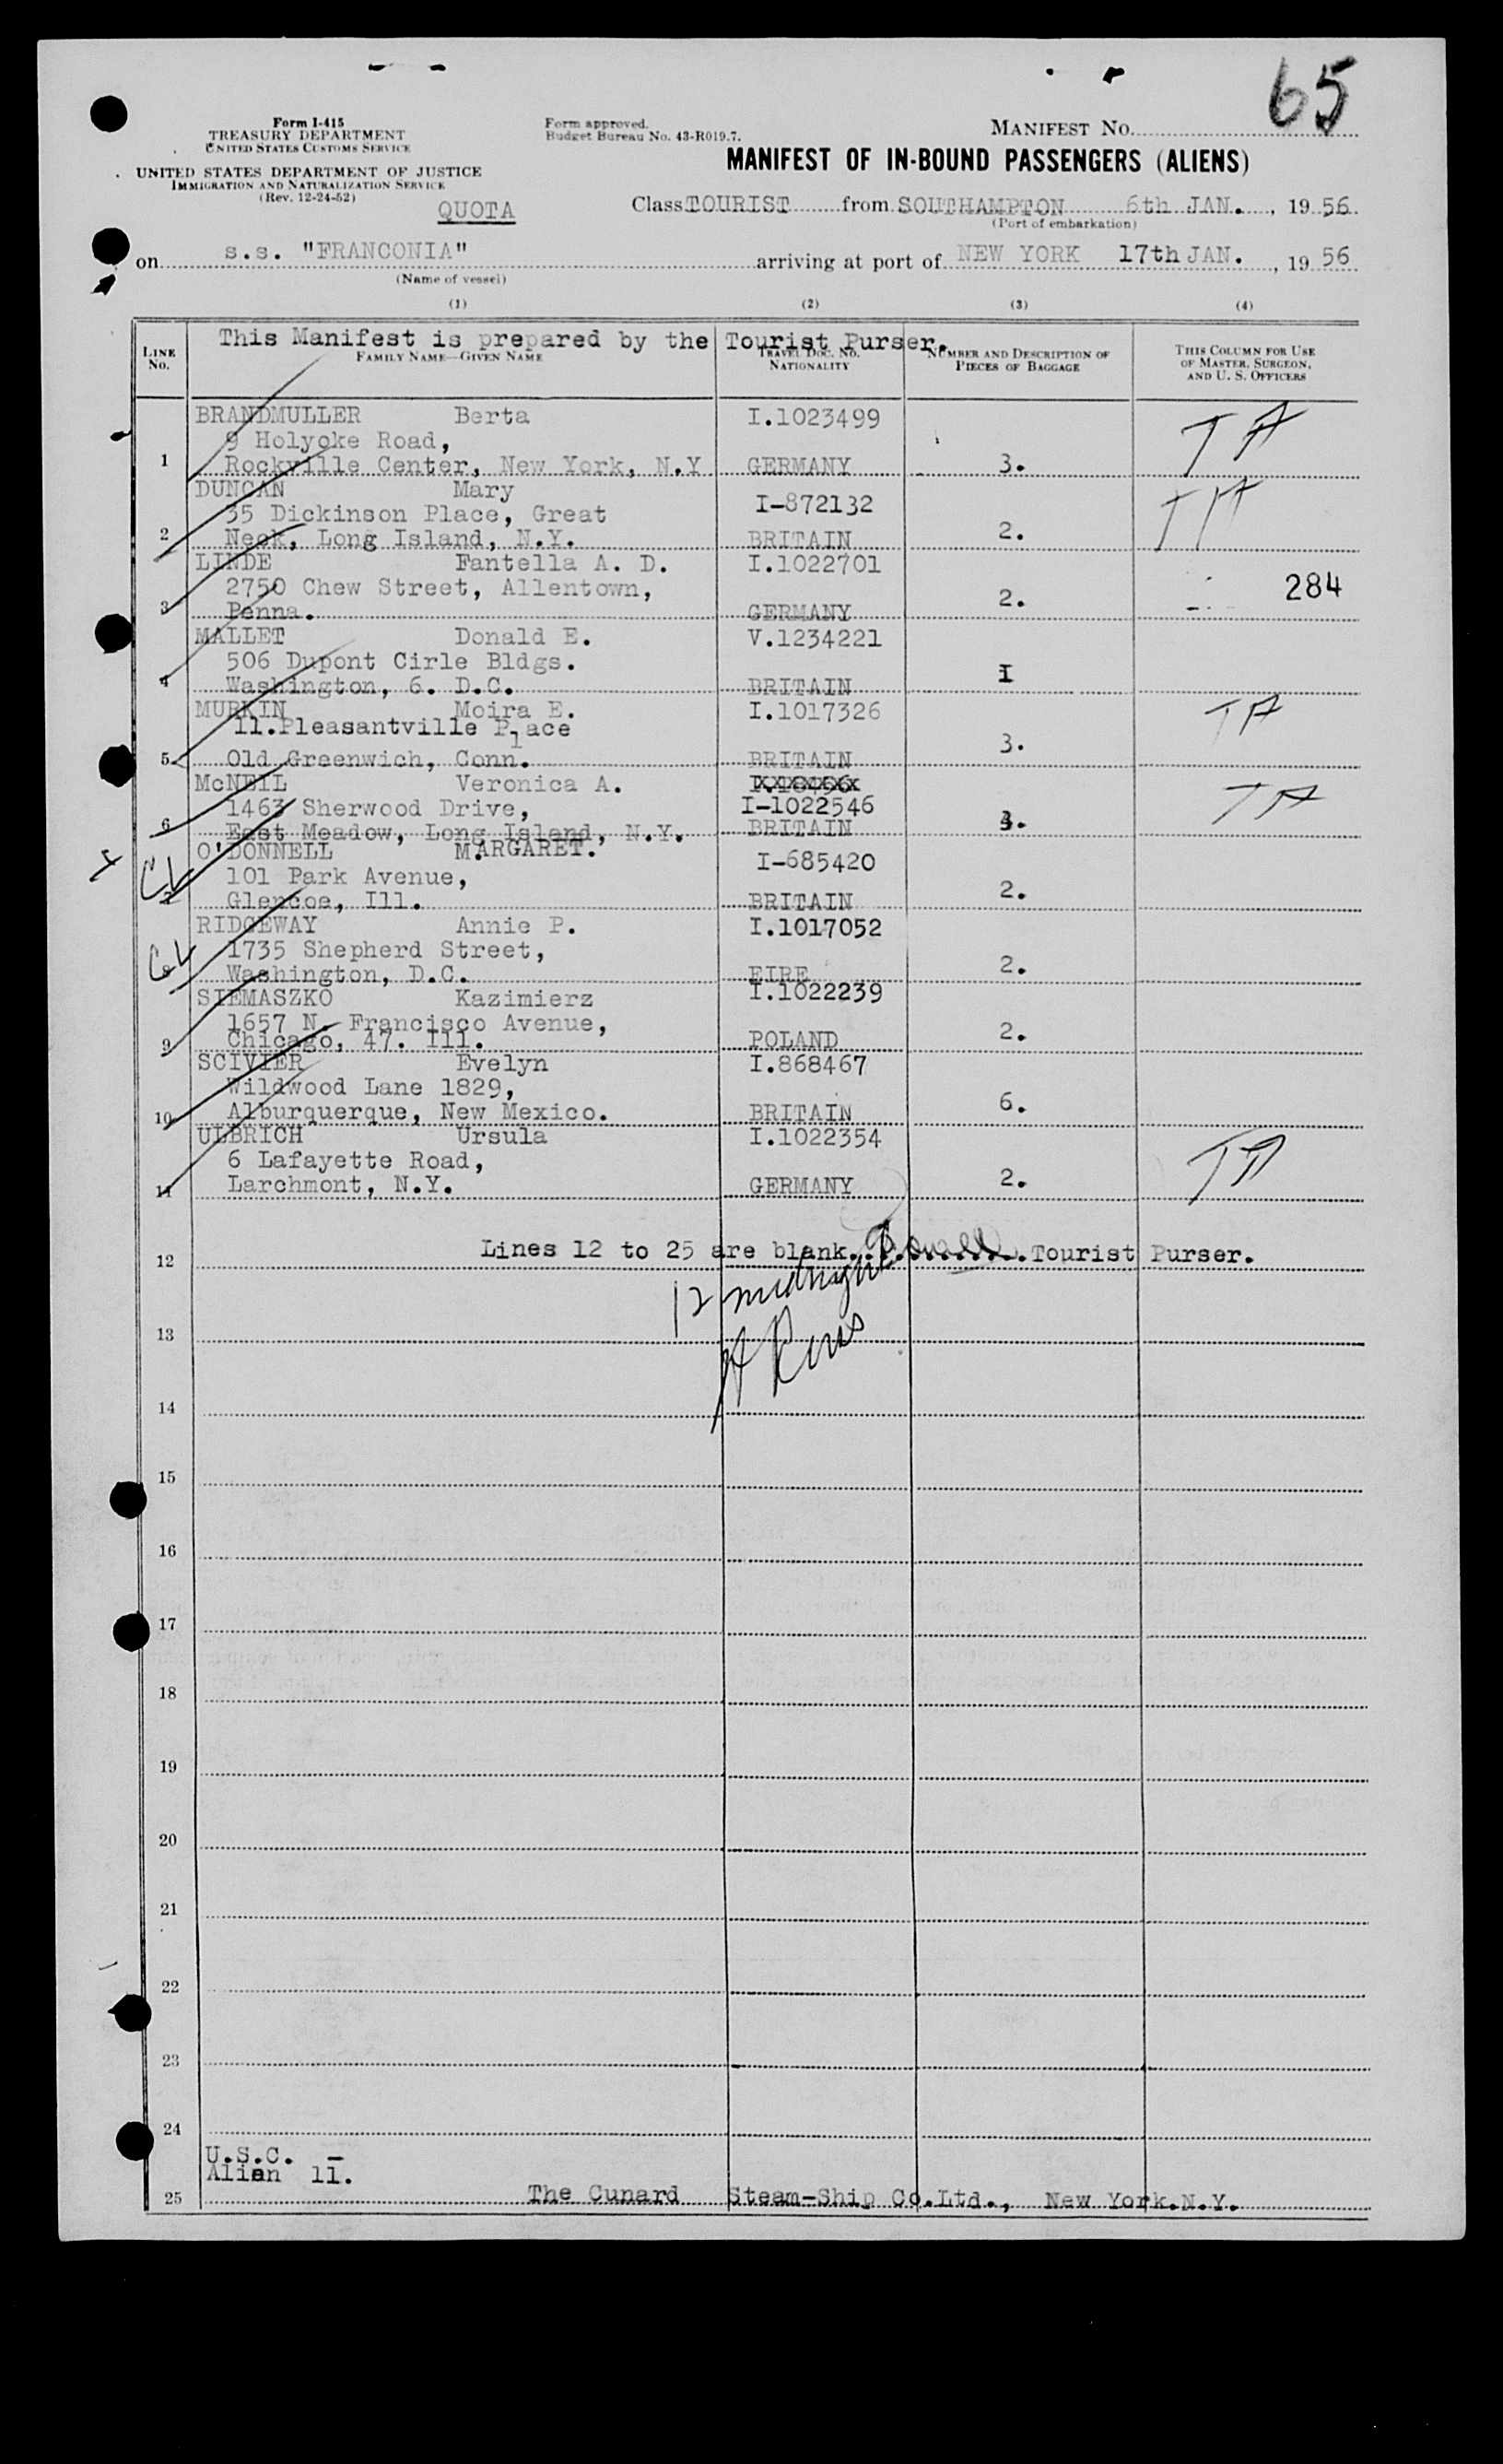 65
Form I-415
TREASURY DEPARTMENT
UNITED STATES CUSTOMS SERVICE
UNITED STATES DEPARTMENT OF JUSTICE
IMMIGRATION AND NATURALIZATION SERVICE
(Rev. 12-24-52)
Form approved.
Budget Bureau No. 43-R019.7.
MANIFEST NO.
MANIFEST OF IN-BOUND PASSENGERS (ALIENS)
QUOTA
Class TOURIST from SOUTHAMPTON 6th JAN., 19 56
(Port of embarkation)
on s.s. "FRANCONIA" arriving at port of NEW YORK 17th JAN., 19 56
(Name of vessel)
(1) (2) (3) (4)
This Manifest is prepared by the Tourist Purser.
LINE NO. FAMILY NAME—GIVEN NAME TRAVEL DOC. NO. NATIONALITY NUMBER AND DESCRIPTION OF PIECES OF BAGGAGE THIS COLUMN FOR USE OF MASTER, SURGEON, AND U. S. OFFICERS
BRANDMULLER Berta I.1023499 TA
9 Holyoke Road,
1 Rockville Center, New York, N.Y GERMANY 3.
DUNCAN Mary I-872132 TA
35 Dickinson Place, Great
2 Neck, Long Island, N.Y. BRITAIN 2.
LINDE Fantella A. D. I.1022701
2750 Chew Street, Allentown, 284
3 Penna. GERMANY 2.
MALLET Donald E. V.1234221
506 Dupont Cirle Bldgs.
4 Washington, 6. D.C. BRITAIN 1
MURKIN Moira E. I.1017326 TA
11.Pleasantville Place
5 Old Greenwich, Conn. BRITAIN 3.
McNEIL Veronica A.
1463 Sherwood Drive, I-1022546 TA
6 East Meadow, Long Island, N.Y. BRITAIN 3.
O'DONNELL MARGARET. I-685420
101 Park Avenue,
7 Glencoe, Ill. BRITAIN 2.
RIDGEWAY Annie P. I.1017052
1735 Shepherd Street,
8 Washington, D.C. EIRE 2.
SIEMASZKO Kazimierz I.1022239
1657 N. Francisco Avenue,
9 Chicago, 47. Ill. POLAND 2.
SCIVIER Evelyn I.868467
Wildwood Lane 1829,
10 Alburquerque, New Mexico. BRITAIN 6.
ULBRICH Ursula I.1022354
6 Lafayette Road, TA
11 Larchmont, N.Y. GERMANY 2.
12 Lines 12 to 25 are blank. Tourist Purser.
12 midnight
13
14
15
16
17
18
19
20
21
22
23
24
U.S.C. -
Alien 11.
25 The Cunard Steam-Ship Co.Ltd., New York.N.Y.